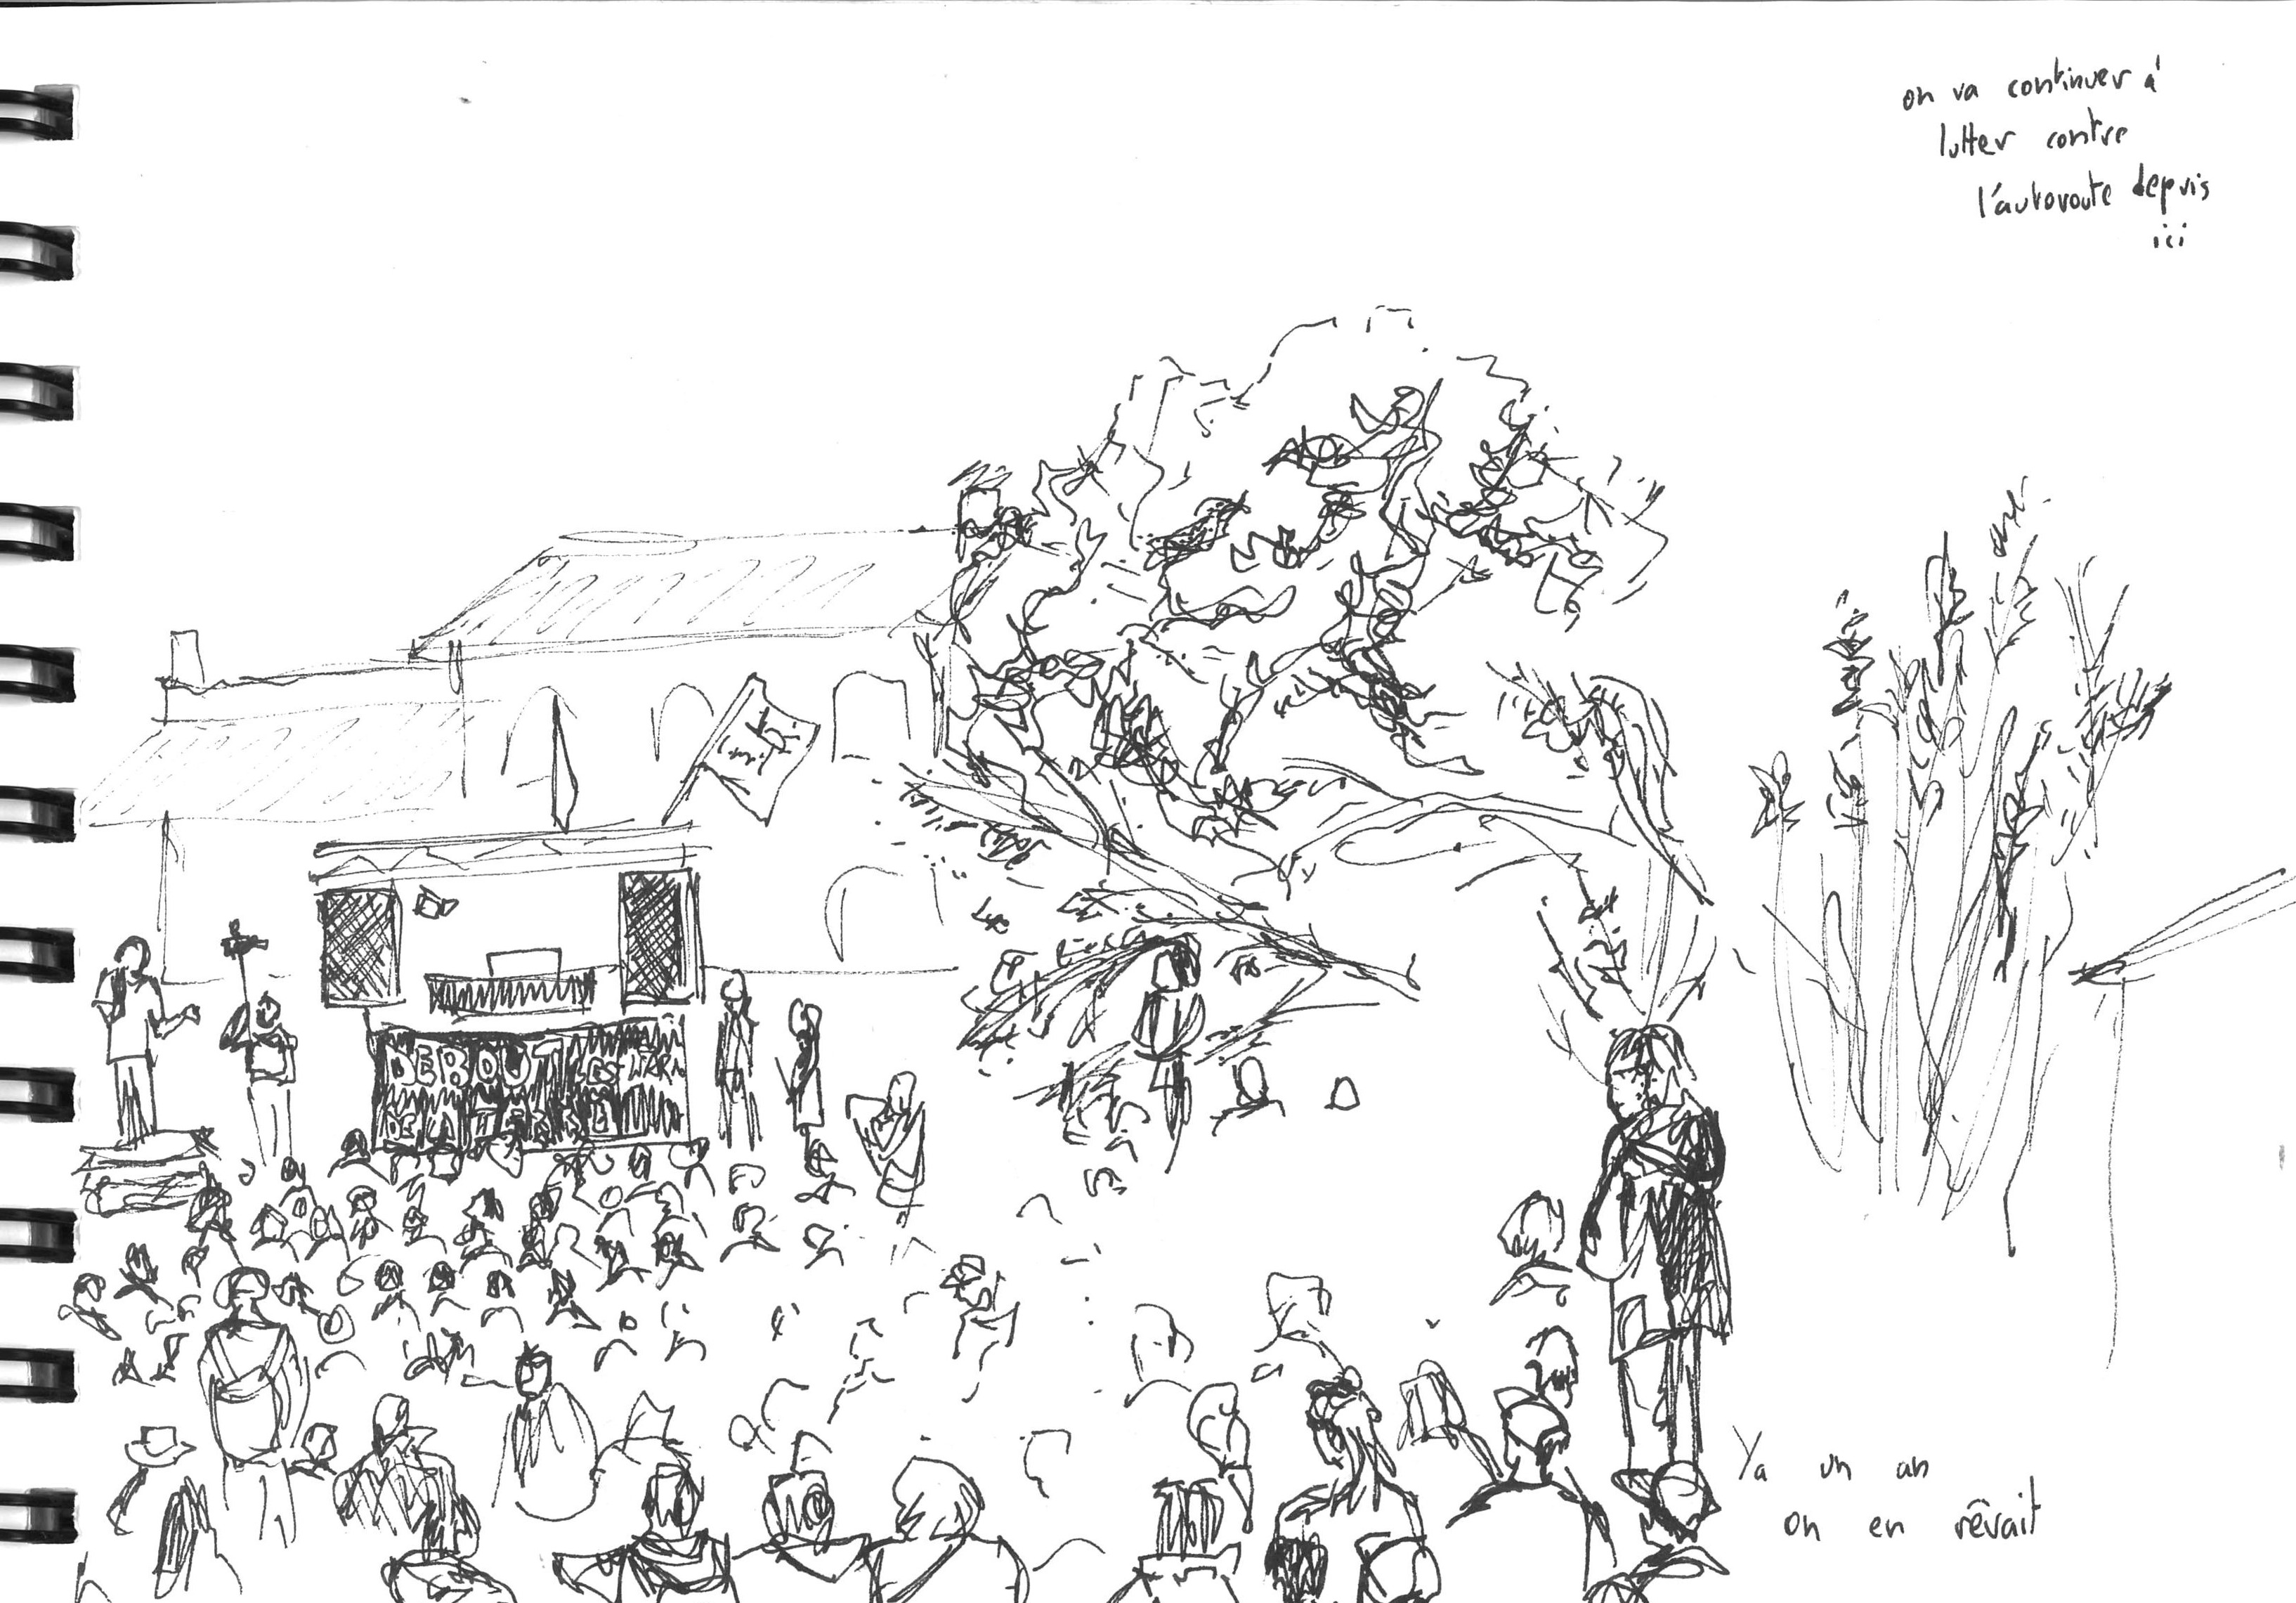 on va continuer à
lutter contre
l'autoroute depuis
ici
DEBOUT LES
DE LA TERRE
Ya un an
on en rêvait